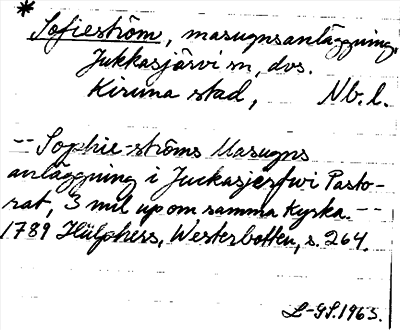 * Sofieström, masugnsanläggning,
Jukkasjärvi sn, dvs.
Kiruna stad, Nb. l.
-- Sophie-ströms Masugns
anläggning i Juckasjerfwi Pasto-
rat, 3 mil up om samma Kyrka. --
1789 Hülphers, Westerbotten, s. 264.
L-GS. 1963.